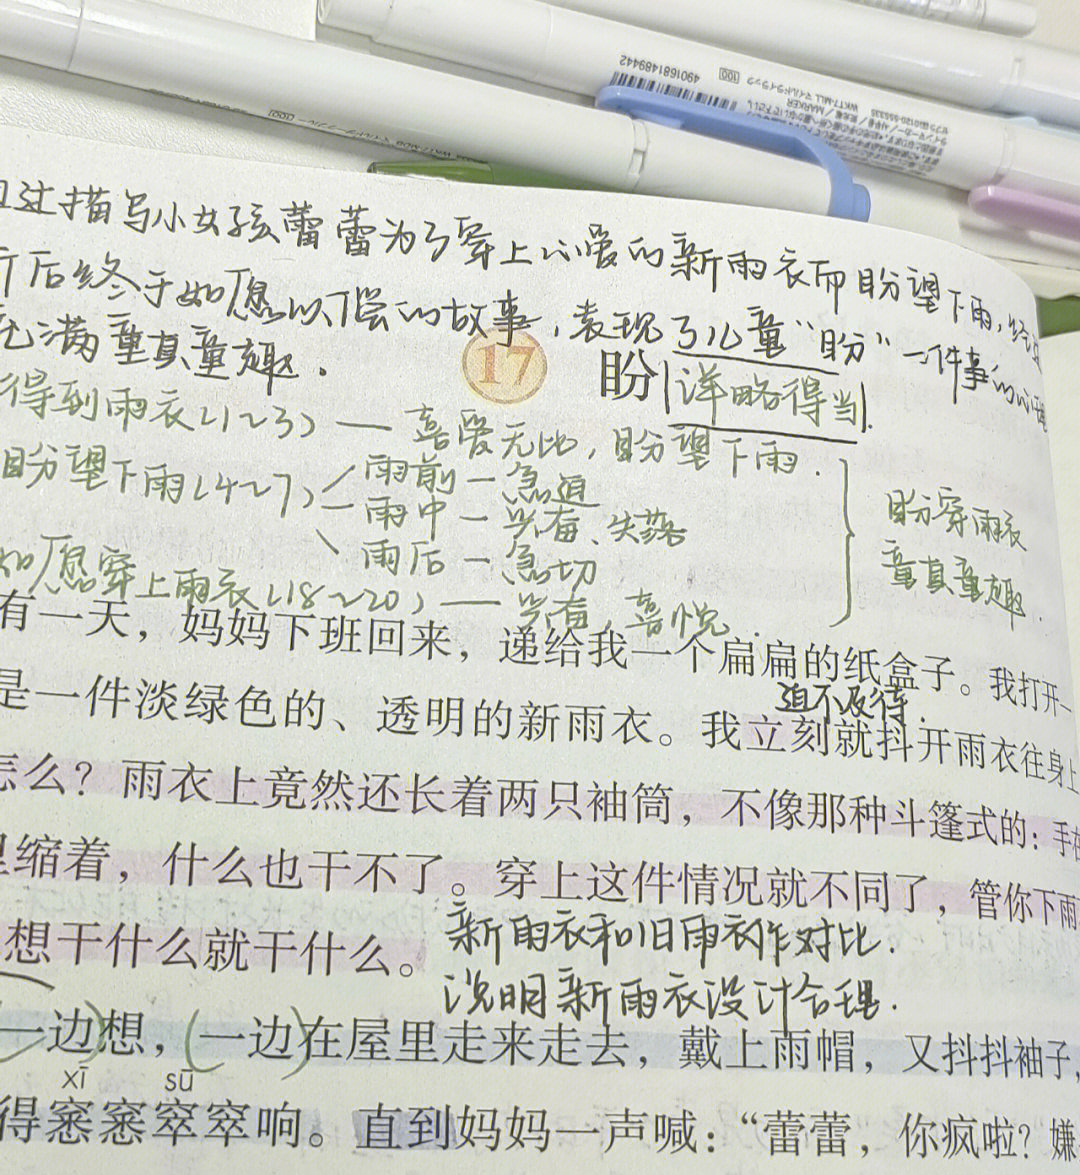 4901681489442
100
WKT7-MLL マイルドライラック
MARKER
0120-555335
过描写小女孩蕾蕾为了穿上心爱的新雨衣而盼望下雨,经
后终于如愿以偿的故事,表现了儿童“盼”一件事的心理
充满童真童趣.
17 盼 详略得当.
得到雨衣(1~3)—喜爱无比,盼望下雨.
盼望下雨(4~7)
雨前—急迫
雨中—兴奋、失落
雨后—急切
盼穿雨衣
童真童趣.
如愿穿上雨衣(18~20)—兴奋,喜悦.
有一天,妈妈下班回来,递给我一个扁扁的纸盒子。我打开一
迫不及待.
是一件淡绿色的、透明的新雨衣。我立刻就抖开雨衣往身上
怎么?雨衣上竟然还长着两只袖筒,不像那种斗篷式的:手在
里缩着,什么也干不了。穿上这件情况就不同了,管你下雨
想干什么就干什么。
新雨衣和旧雨衣作对比.
说明新雨衣设计合理.
一边)想,(一边)在屋里走来走去,戴上雨帽,又抖抖袖子,
xī sū
得窸窸窣窣响。直到妈妈一声喊:“蕾蕾,你疯啦?嫌